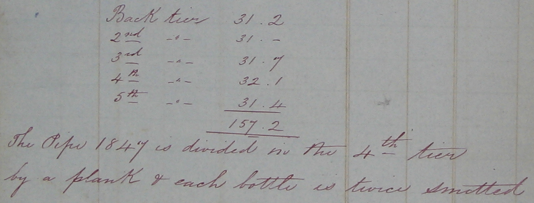 Back tier 31.2
2nd -"- 31.-
3rd -"- 31.7
4th -"- 32.1
5th -"- 31.4
157 2
The Pipe 1847 is divided in the 4th tier
by a plank & each bottle is twice smitted